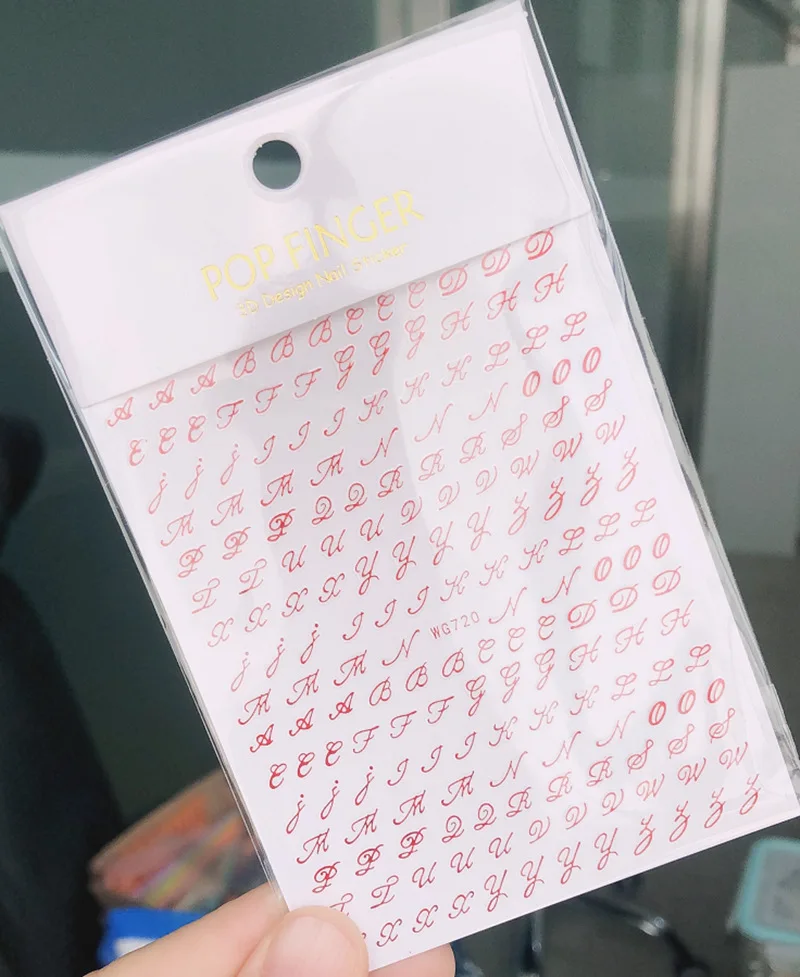 POP FINGER
3D Design Nail Sticker
A A A B B B C C C D D D
E E E F F F G G G H H H
j j j I I I K K K L L L
M M M M N N N O O O
P P P Q Q R R R S S S
T T U U U V V V W W W
X X X X Y Y Y Y Z Z Z Z
j j j I I I K K K L L L
M M M M N WG720 N N O O O
A A A B B B C C C D D D
E E E F F F G G G H H H
j j j I I I K K K L L L
M M M M N N N O O O
P P P Q Q R R R S S S
T T U U U V V V W W W
X X X X Y Y Y Y Z Z Z Z